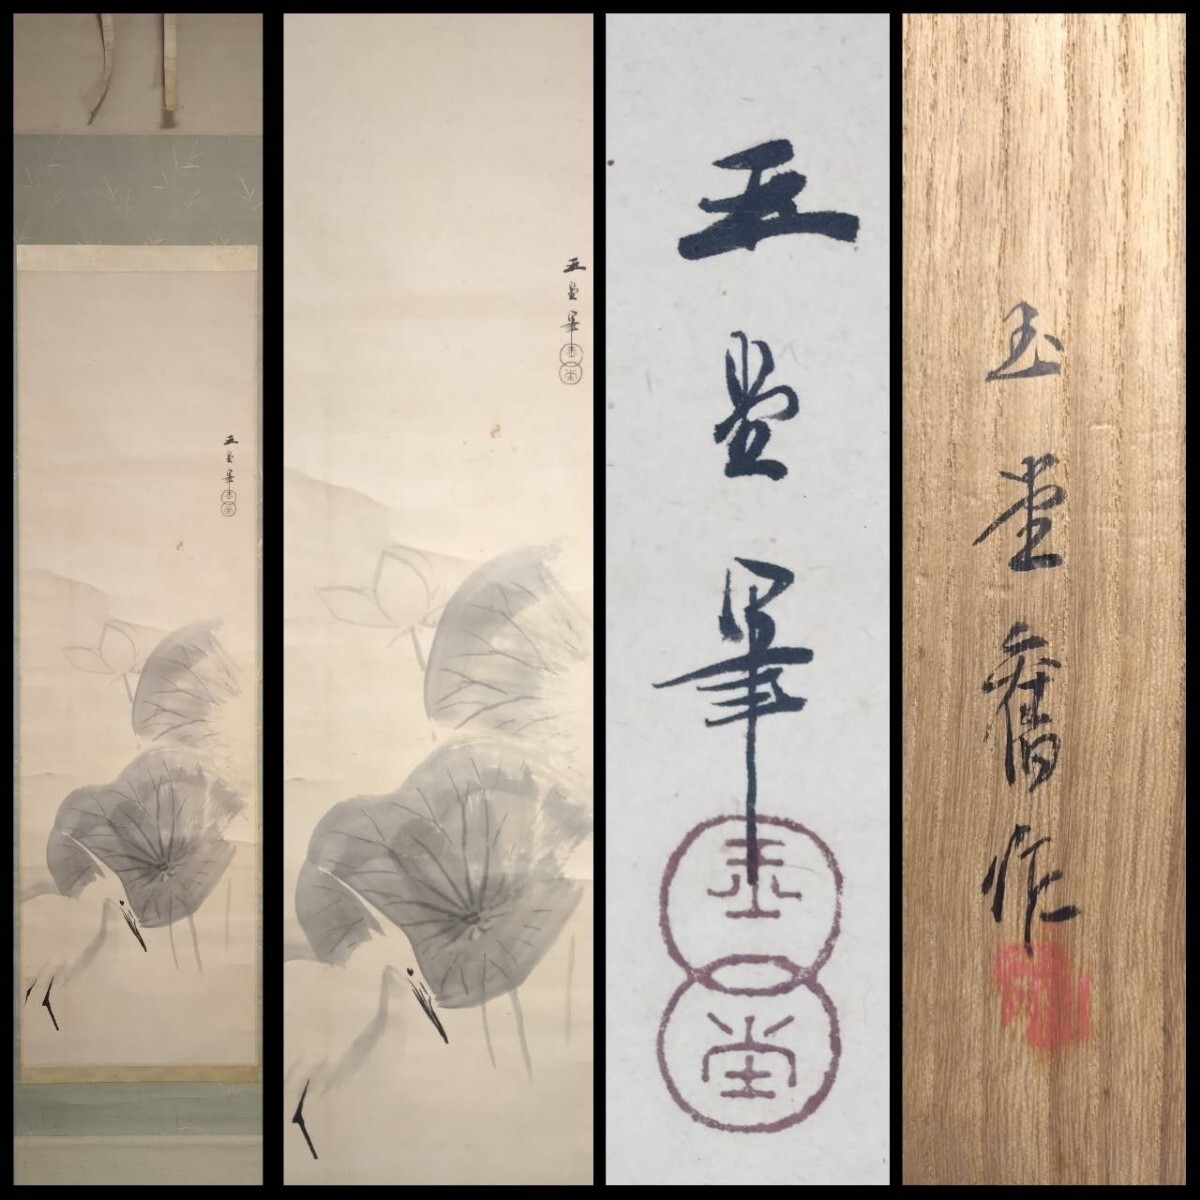 玉堂筆
玉堂
玉堂筆
玉堂
玉堂筆
玉堂
玉堂旧作